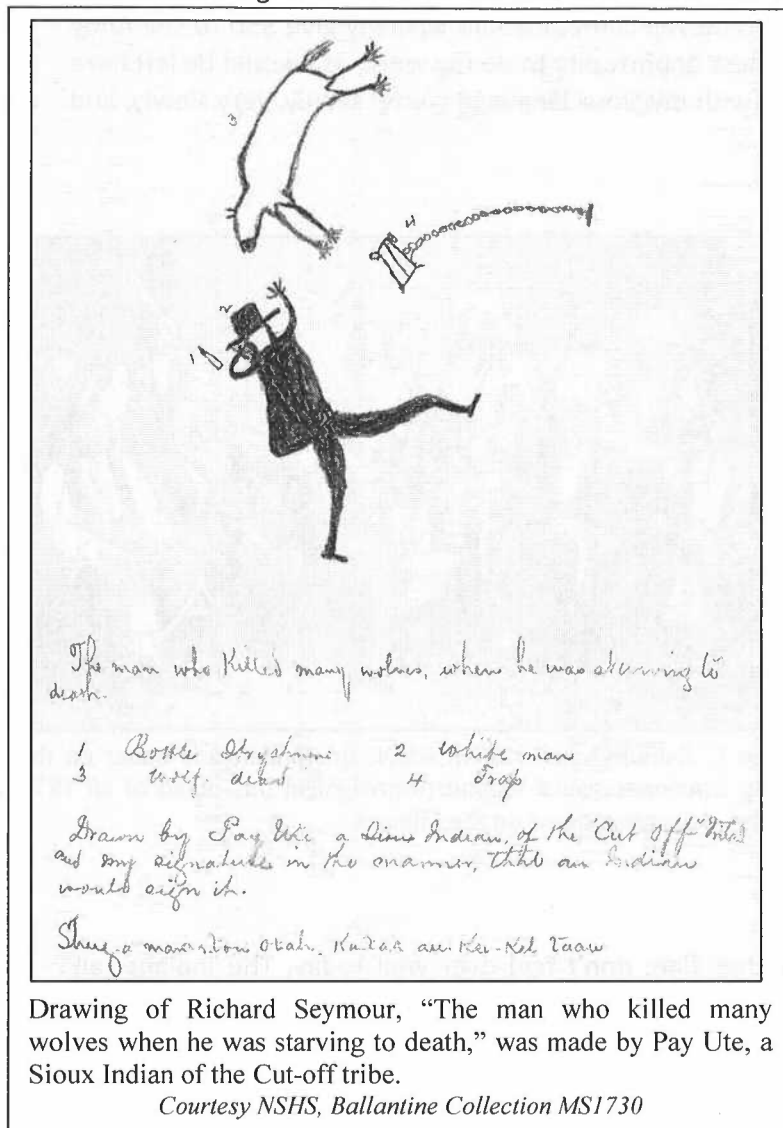 3
4
2
1
The man who Killed many wolves, when he was starving to
death.
1 Bottle Strychnine 2 White man
3 Wolf. dead 4 Trap
Drawn by Pay Ute a Sioux Indian, of the "Cut Off"
and my signature in the manner, that an Indian
would sign it.
Drawing of Richard Seymour, “The man who killed many
wolves when he was starving to death,” was made by Pay Ute, a
Sioux Indian of the Cut-off tribe.
Courtesy NSHS, Ballantine Collection MS1730